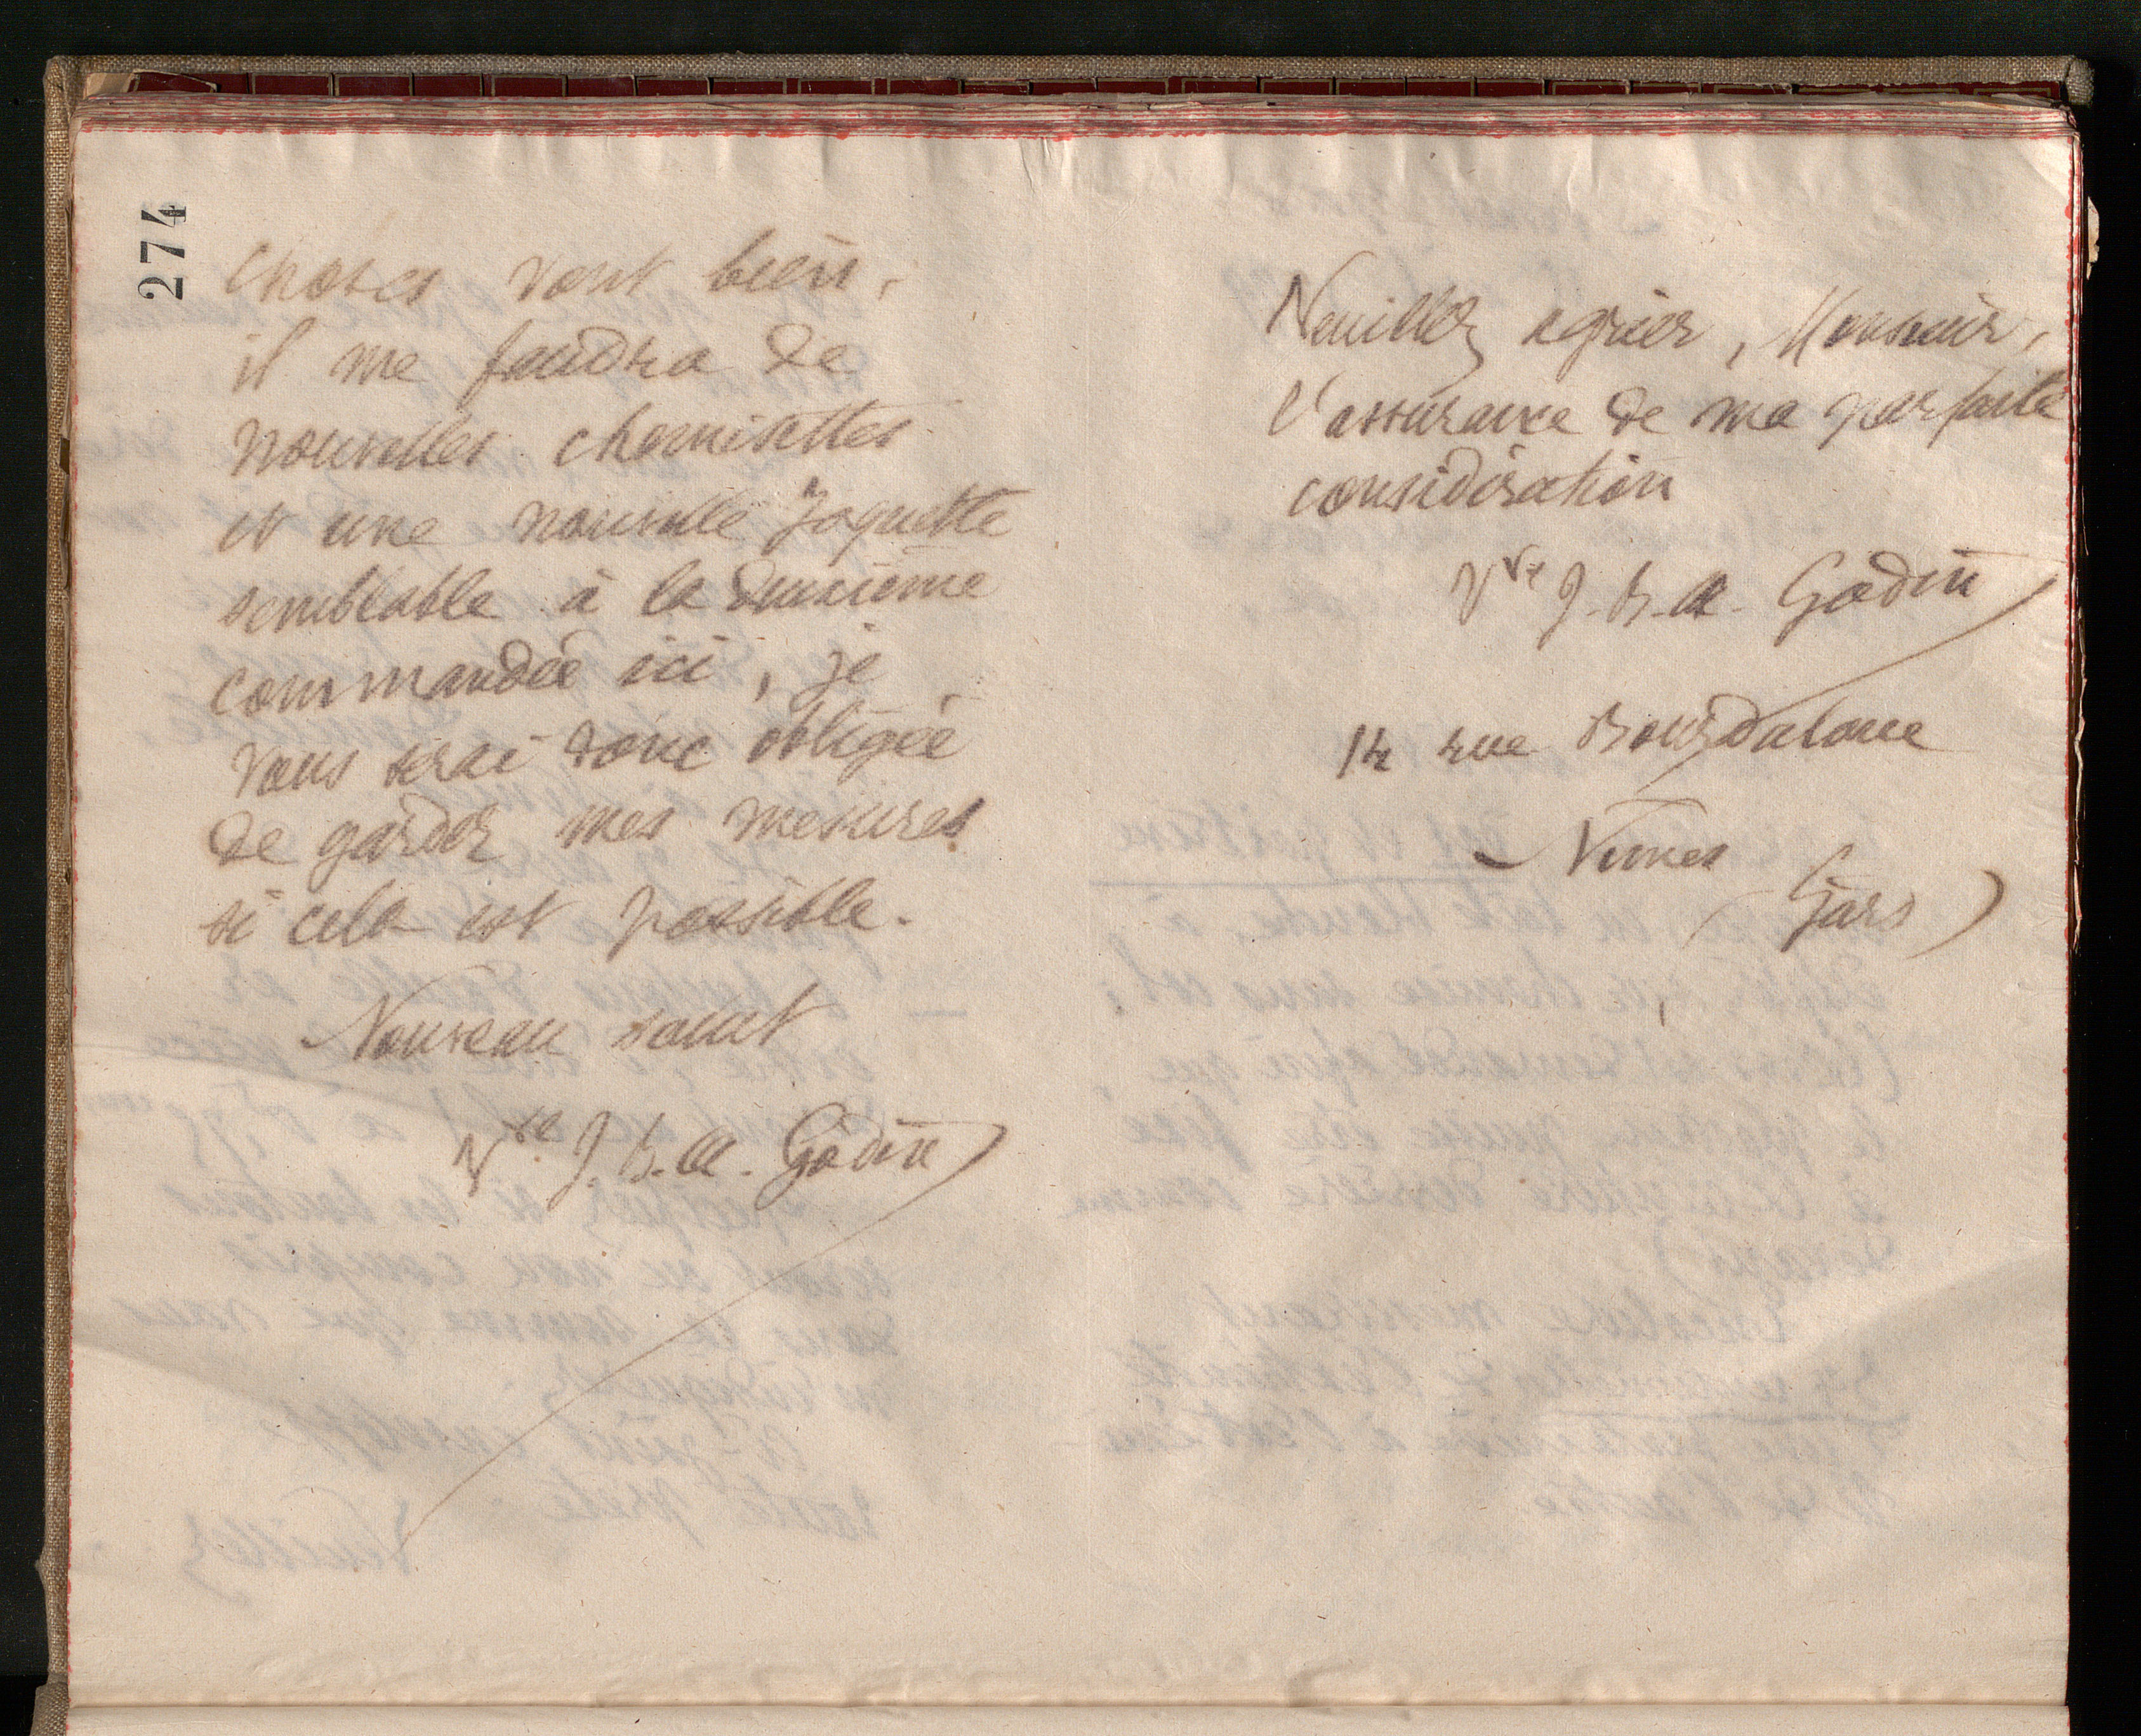 274
choses vont bien,
il me faudra de
nouvelles chemisettes
et une nouvelle jaquette
semblable à la deuxième
commandée ici, je
vous serai donc obligée
de garder mes mesures
si cela est possible.
Nouveau salut
Vve J. B. A. Godin
Veuillez agréer, Monsieur,
l'assurance de ma parfaite
considération
Vve J. B. A. Godin
14 rue Bourdaloue
Nimes
(Gard)